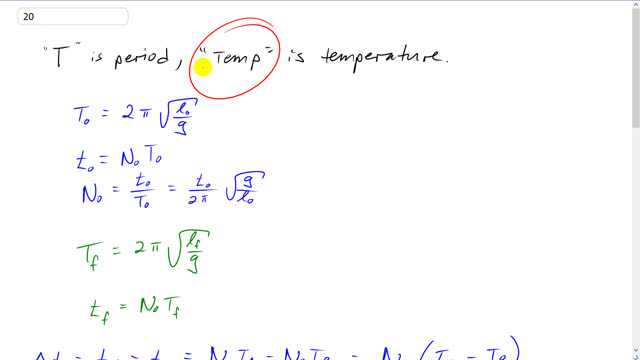 20
"T" is period, "Temp" is temperature.
T₀ = 2π √(l₀/g)
t₀ = N₀T₀
N₀ = t₀/T₀ = t₀/2π √(g/l₀)
T_f = 2π √(l_f/g)
t_f = N₀T_f